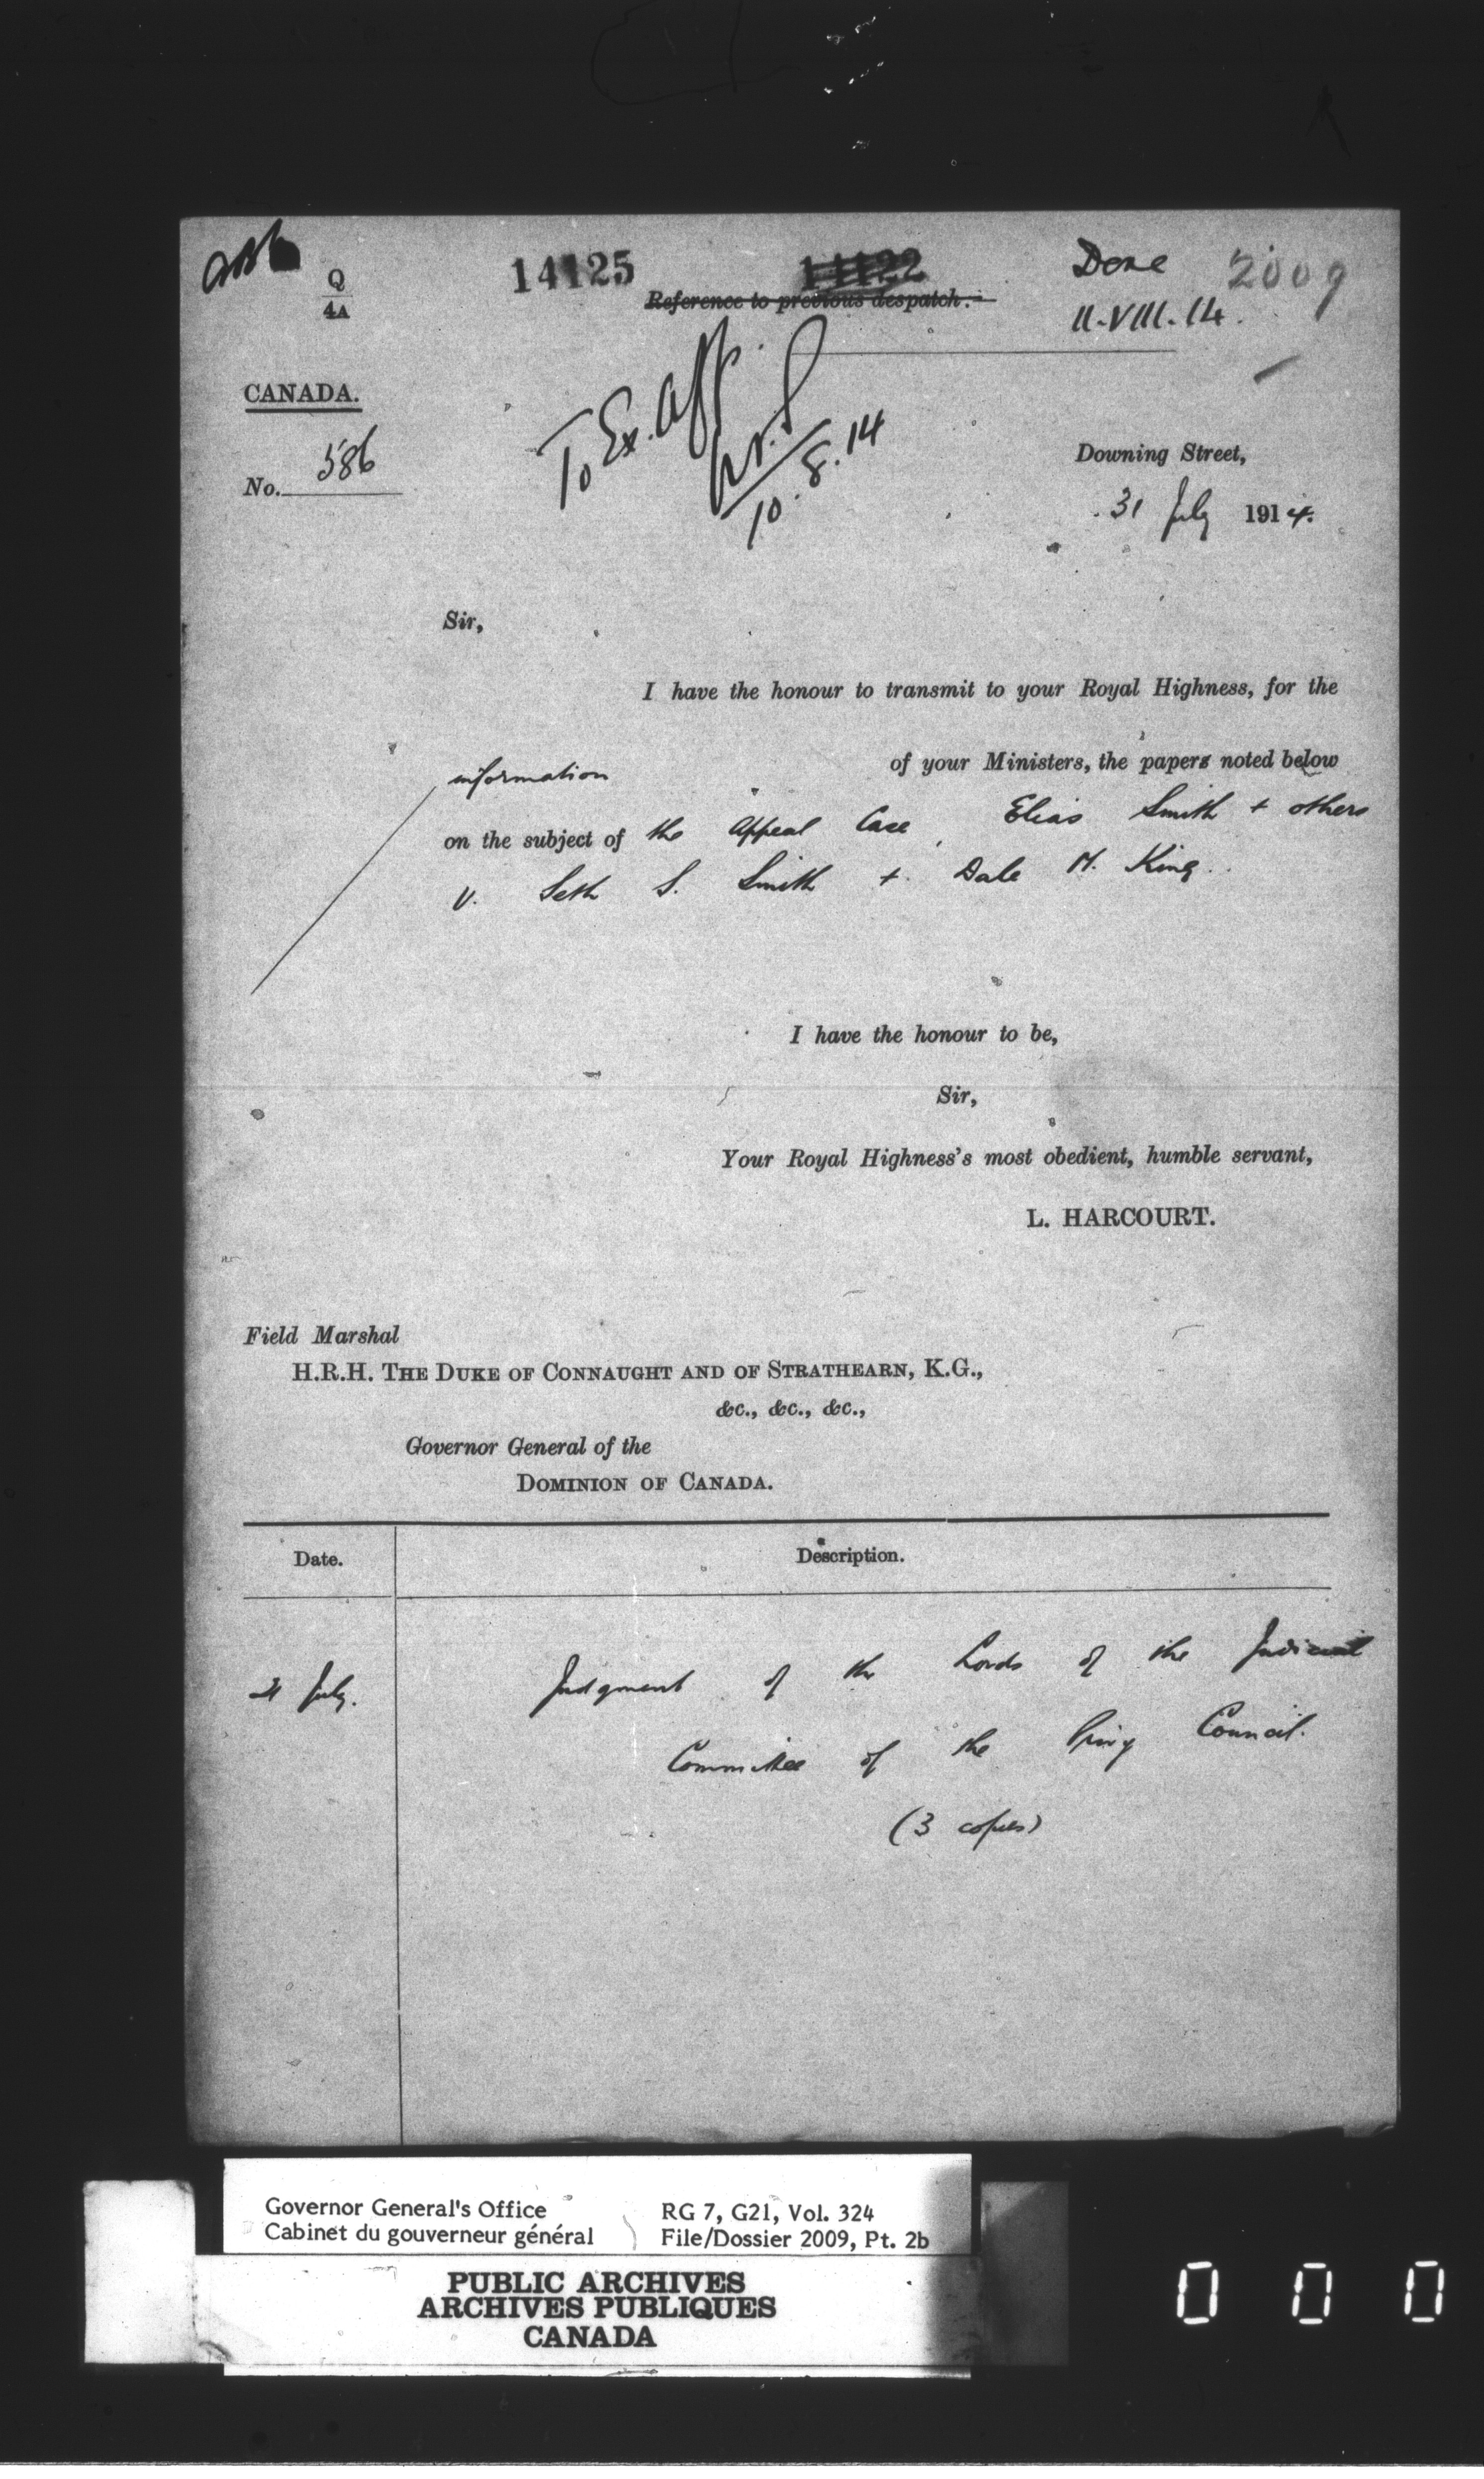 Q
4A
14125
14122
Done
2009
Reference to previous despatch.
11-VIII-14.
CANADA.
To Ex. Aff.
10.8.14
No. 586
Downing Street,
31 July 1914.
Sir,
I have the honour to transmit to your Royal Highness, for the
information of your Ministers, the papers noted below
on the subject of the Appeal Case, Elias Smith + others
v. Seth S. Smith + Dale M. King.
I have the honour to be,
Sir,
Your Royal Highness's most obedient, humble servant,
L. HARCOURT.
Field Marshal
H.R.H. THE DUKE OF CONNAUGHT AND OF STRATHEARN, K.G.,
&c., &c., &c.,
Governor General of the
DOMINION OF CANADA.
Date. Description.
July. Judgment of the Lords of the Judicial
Committee of the Privy Council.
(3 copies)
Governor General's Office RG 7, G21, Vol. 324
Cabinet du gouverneur général File/Dossier 2009, Pt. 2b
PUBLIC ARCHIVES
ARCHIVES PUBLIQUES
CANADA
0 0 0